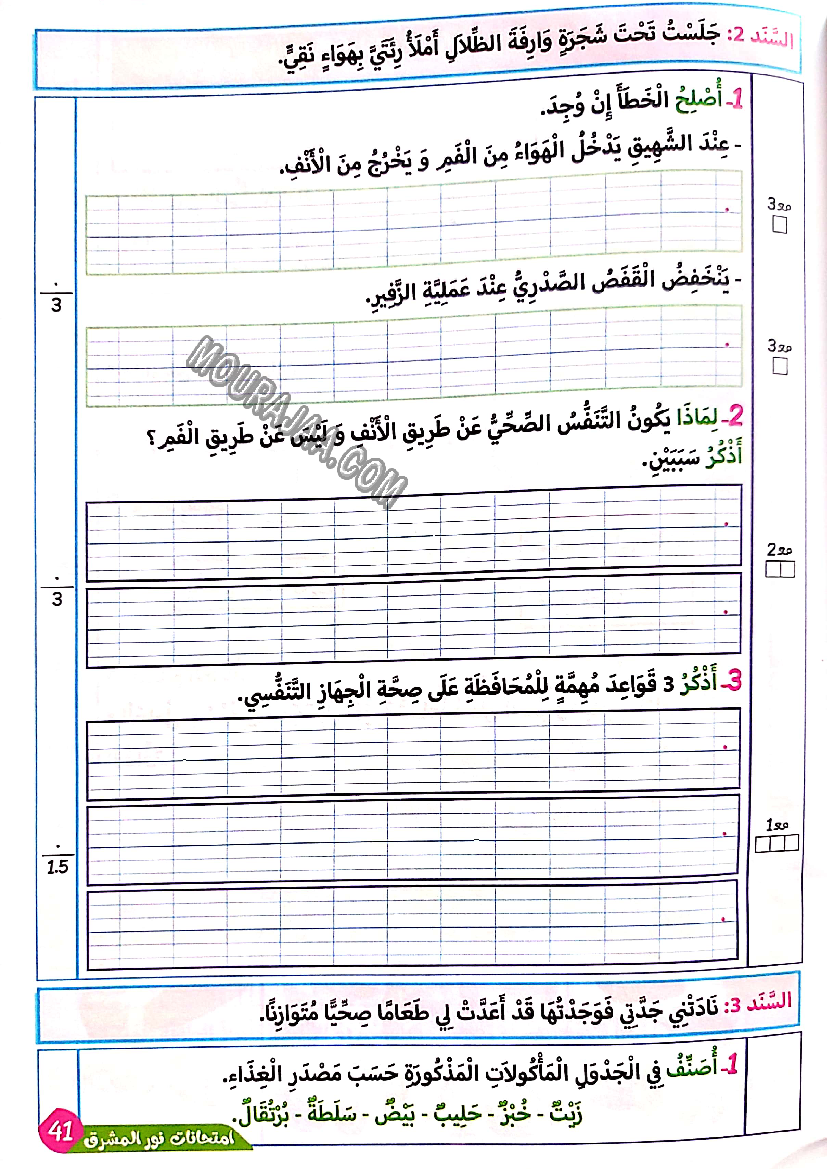 السَّنَد 2: جَلَسْتُ تَحْتَ شَجَرَةٍ وَارِفَةَ الظِّلَالِ أَمْلَأُ رِئَتَيَّ بِهَوَاءٍ نَقِيٍّ.
1- أُصْلِحُ الْخَطَأَ إِنْ وُجِدَ.
- عِنْدَ الشَّهِيقِ يَدْخُلُ الْهَوَاءُ مِنَ الْفَمِ وَ يَخْرُجُ مِنَ الْأَنْفِ.
مع3
3
- يَنْخَفِضُ الْقَفَصُ الصَّدْرِيُّ عِنْدَ عَمَلِيَّةِ الزَّفِيرِ.
مع3
MOURAJAA.COM
2- لِمَاذَا يَكُونُ التَّنَفُّسُ الصِّحِّيُّ عَنْ طَرِيقِ الْأَنْفِ وَ لَيْسَ عَنْ طَرِيقِ الْفَمِ؟
أَذْكُرُ سَبَبَيْنِ.
مع2
3
3- أَذْكُرُ 3 قَوَاعِدَ مُهِمَّةٍ لِلْمُحَافَظَةِ عَلَى صِحَّةِ الْجِهَازِ التَّنَفُّسِي.
مع1
1.5
السَّنَد 3: نَادَتْنِي جَدَّتِي فَوَجَدْتُهَا قَدْ أَعَدَّتْ لِي طَعَامًا صِحِّيًّا مُتَوَازِنًا.
1- أُصَنِّفُ فِي الْجَدْوَلِ الْمَأْكُولَاتِ الْمَذْكُورَةِ حَسَبَ مَصْدَرِ الْغِذَاءِ.
زَيْتٌ - خُبْزٌ - حَلِيبٌ - بَيْضٌ - سَلَطَةٌ - بُرْتُقَالٌ.
امتحانات نور المشرق 41